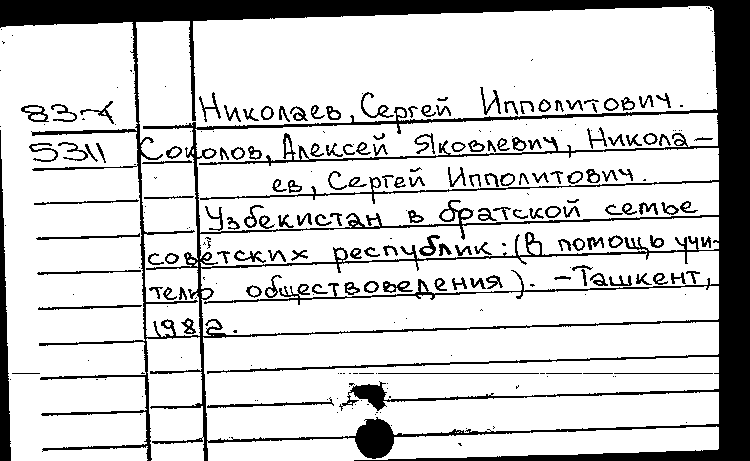 83-4 Николаев, Сергей Ипполитович.
5311 Соколов, Алексей Яковлевич, Никола-
ев, Сергей Ипполитович.
Узбекистан в братской семье
советских республик: (В помощь учи-
телю обществоведения). - Ташкент,
1982.